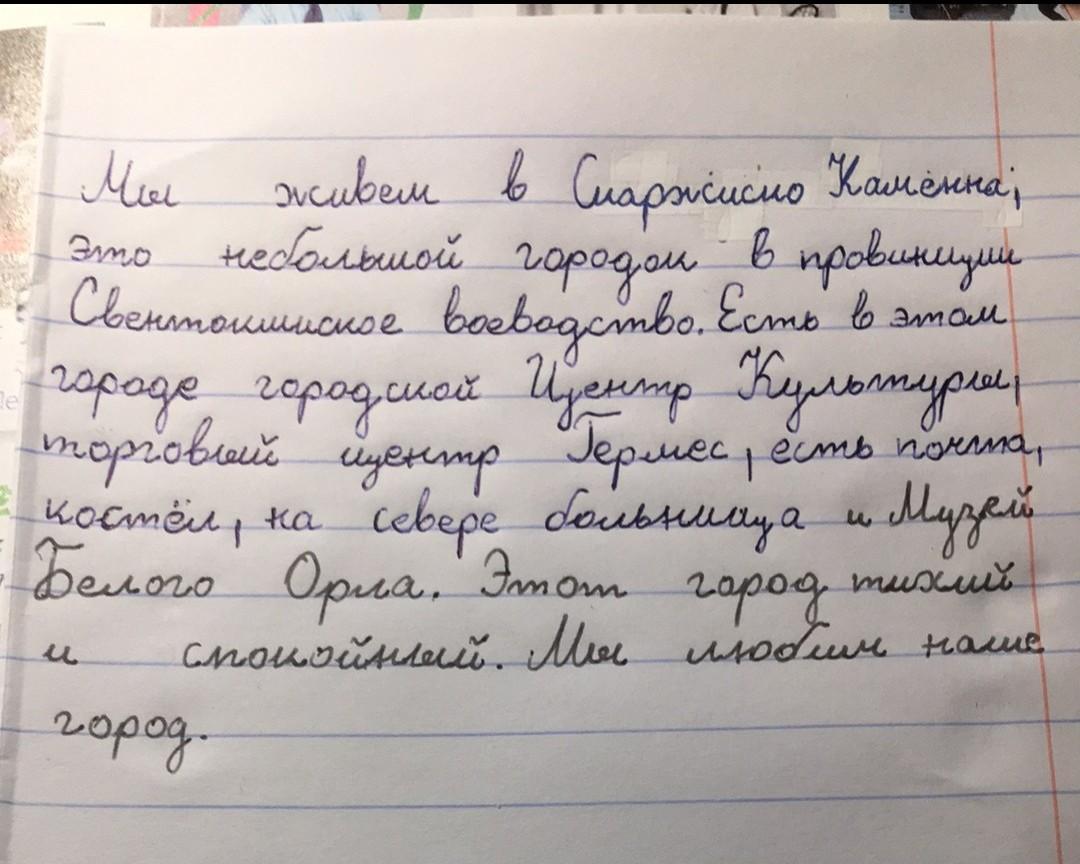 Мы живем в Скаржиско Камённа,
это небольшой городом в провинции
Свентокшиское воевадство. Есть в этом
городе городской Центр Культуры,
торговый центр Гермес, есть почта,
костёл, на севере больница и Музей
Белого Орла. Этот город тихий
и спокойный. Мы любим наше
город.